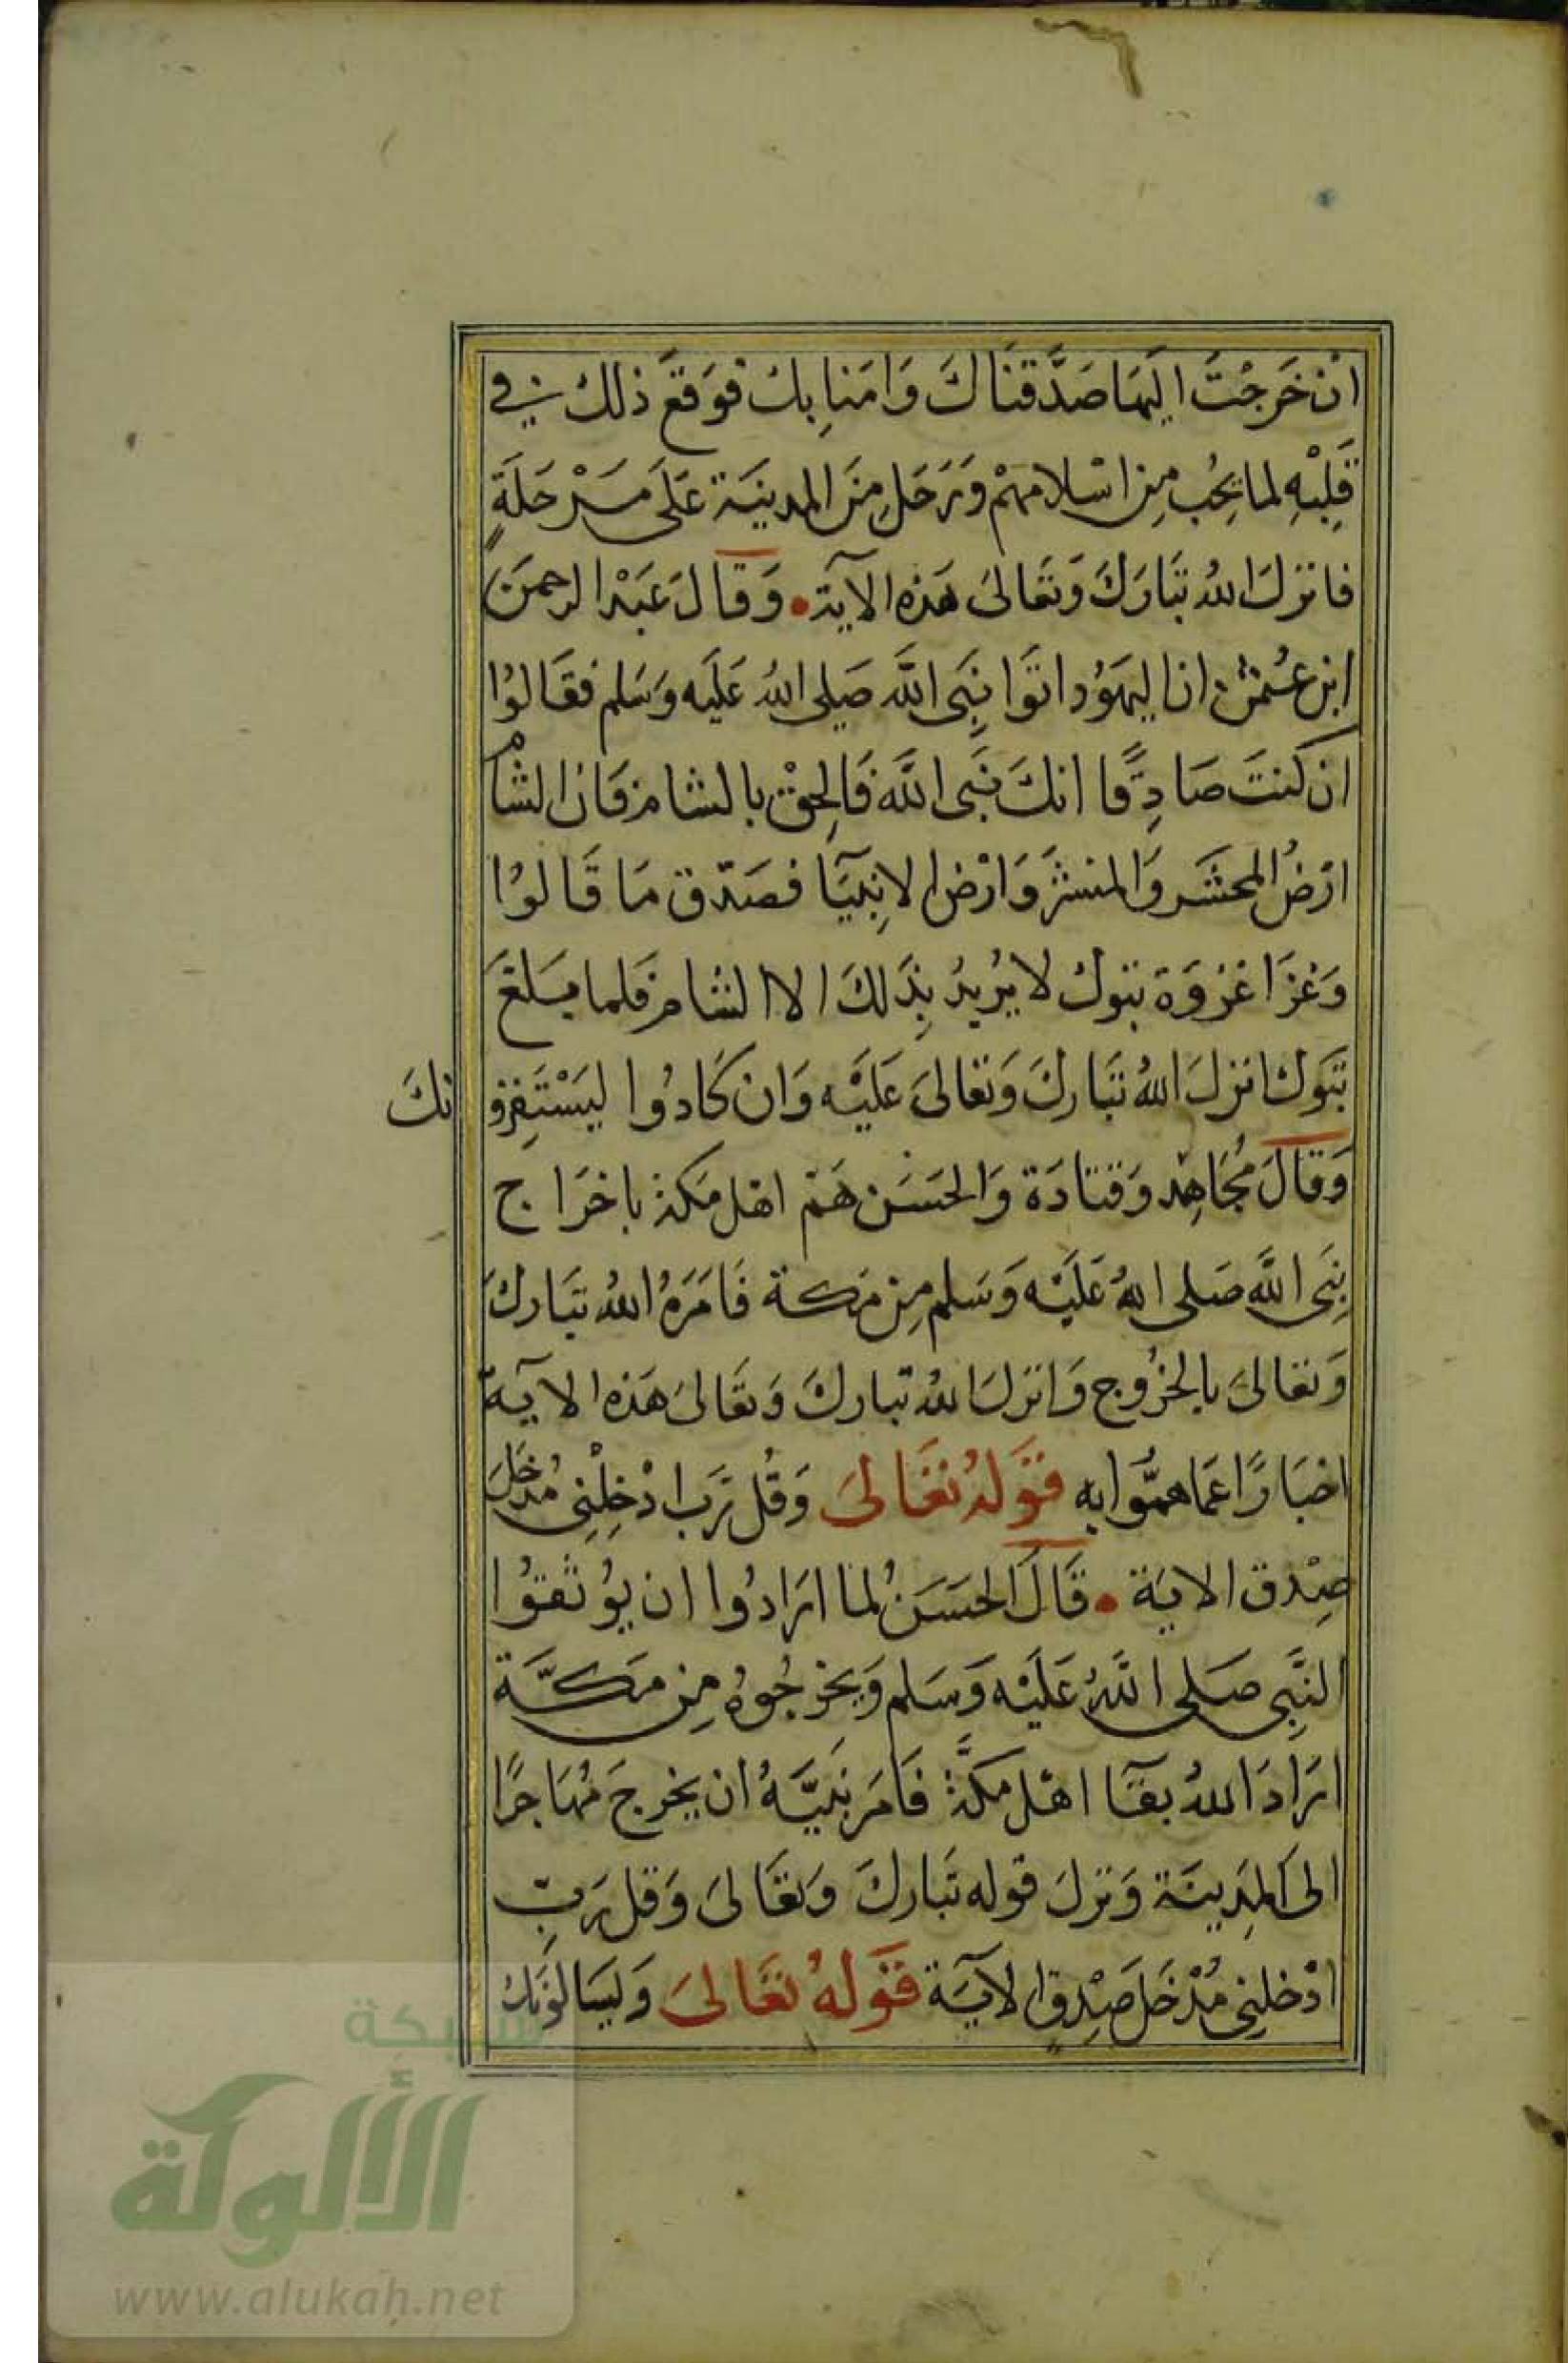 ان خَرجْتَ اليهَا صَدَّقنَاكَ وَامَنا بِكَ فوَقعَ ذلك في
قَلبْهِ لما يحُب مِن اسْلامهمْ وَرَحَل مِنَ المدينَة عَلَى مَرْحَلَةٍ
فانزلَ اللهُ تبَارَكَ وَتعَالىَ هَذه الآية • وَقالَ عَبْد الرحمَن
ابن عُثمن ان اليهَوُد اتَوا نَبِىَ اللَّه صَلى اللهُ عَليَه وَسَلم فقَالوُا
ان كنتَ صَادِقًا انكَ نَبَى اللَّه فَالِحقْ بالشام فَان الشَام
ارْضُ المحشَر وَالمنشَر وَارْض الانبِيَآ فصَدّق مَا قَالوُا
وَغزَا غزْوَة تبوكَ لا يرُيدُ بِذَلكَ الا الشام فلما بَلغَ
تبَوك انزلَ اللهُ تبَاركَ وَتعَالىَ عَليْه وَان كَادوُا ليَسْتَفِزونكَ
وَقالَ مُجَاهِد وَقتَادَة وَالحَسَن هَم اهْل مَكة باخرَاج
نَبِى اللَّه صَلى اللهُ عَليَه وَسَلم مِن مَكة فَامَرَهُ اللهُ تبَاركَ
وَتعَالىَ بالخرُوج وَانزلَ اللهُ تبَاركَ وَتعَالىَ هَذه الايَة
اخبَارًا عَما همُّوا به قوَلهُ تعَالىَ وَقُل رَب ادْخِلْنِى مُدخَلَ
صِدْق الاية • قَالَ الحَسَنُ لما ارَادوُا ان يوُثقوُا
النَّبِى صَلى اللَّهُ عَليْه وَسَلم وَيخرجُوهُ مِن مَكَّة
ارَادَ اللهُ بقآ اهْل مَكَّة فَامَر نبيَّهُ ان يخرجَ مُهَاجرًا
الى المدِينَة وَنزلَ قوله تبَاركَ وَتعَالىَ وَقل رَبِّ
ادْخلنِى مُدْخَلَ صِدْقٍ الآيَة قوَلهُ تعَالىَ وَليسَالوُنَكَ
شبكة
الألوكة
www.alukah.net